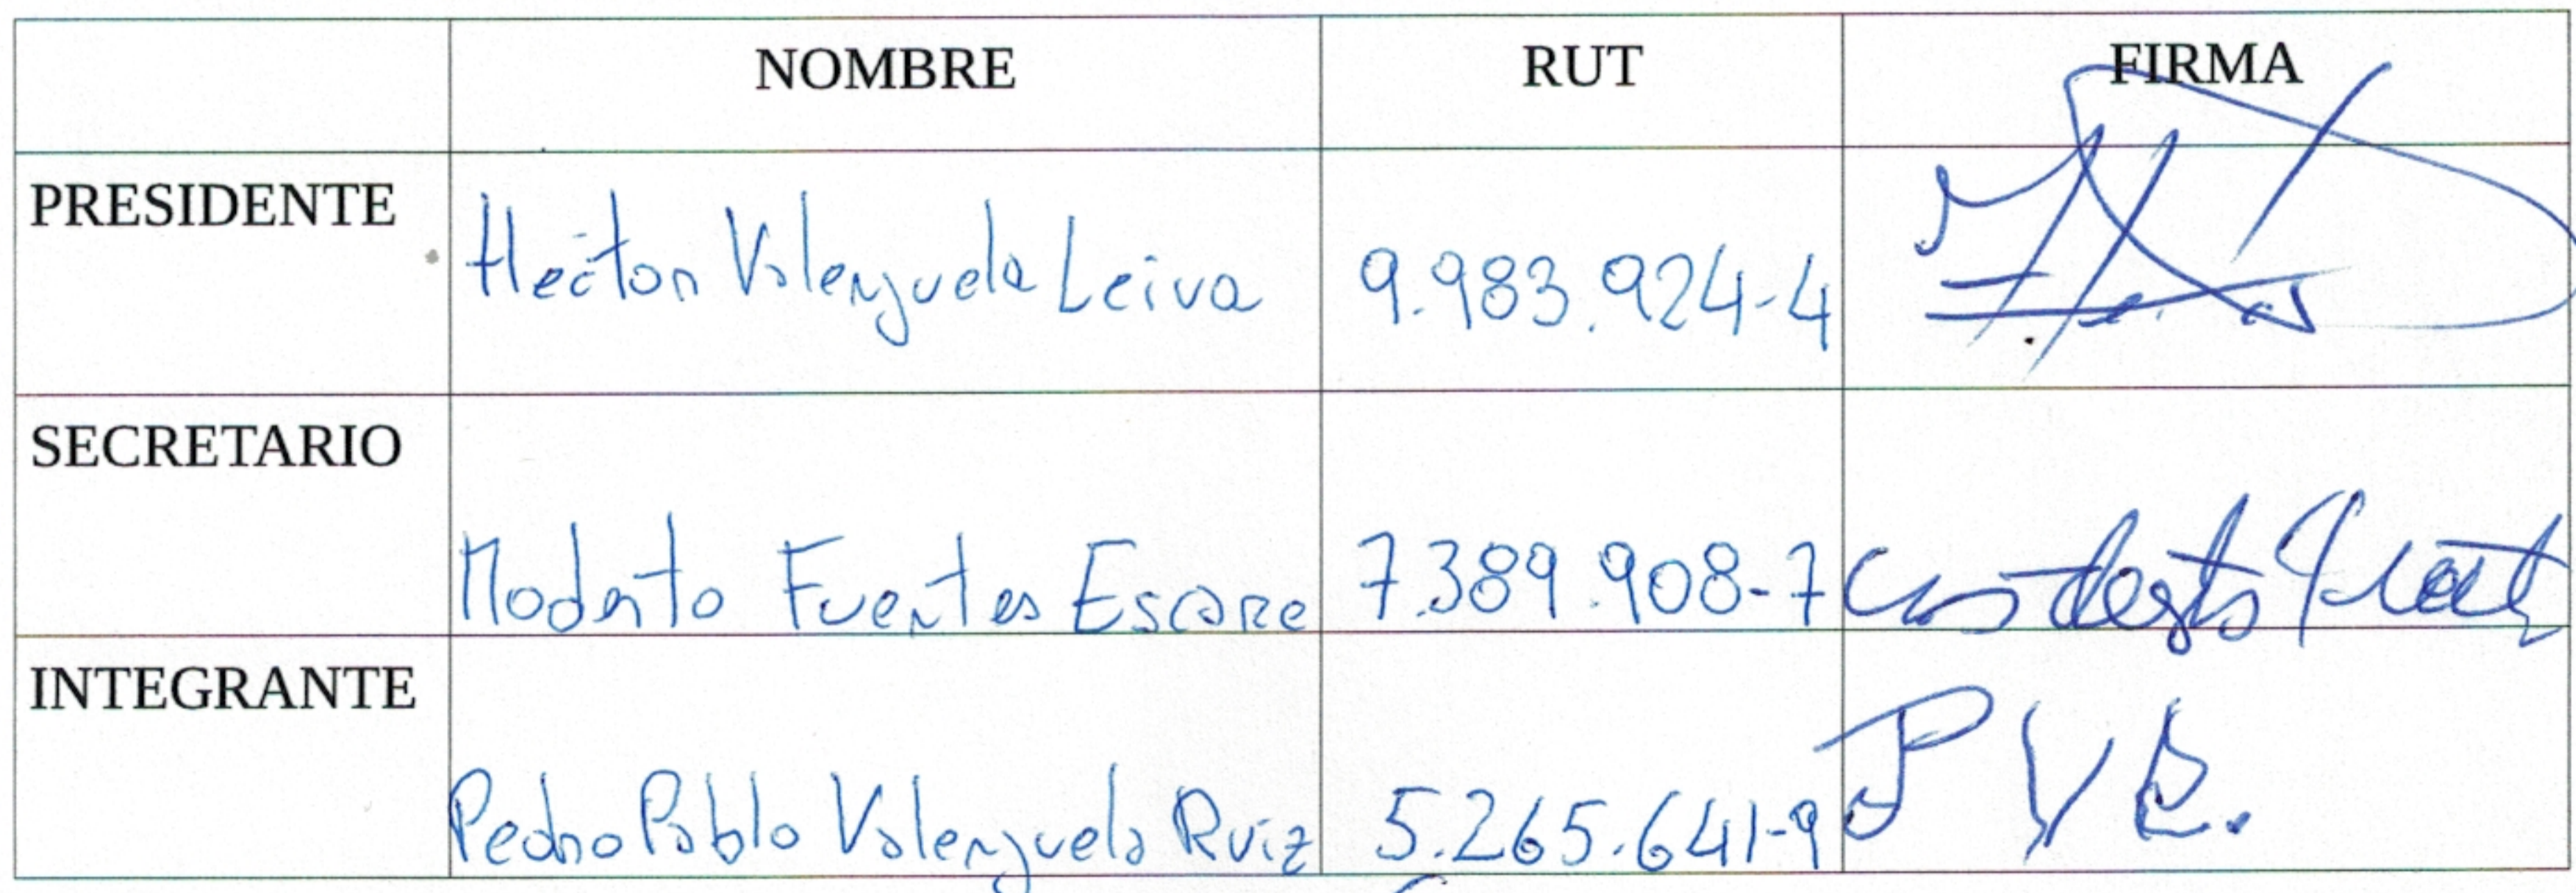 NOMBRE RUT FIRMA
PRESIDENTE Hector Valenzuela Leiva 9.983.924-4
SECRETARIO
Modesto Fuentes Escare 7.389.908-7
INTEGRANTE
Pedro Pablo Valenzuela Ruiz 5.265.641-9 P V R.